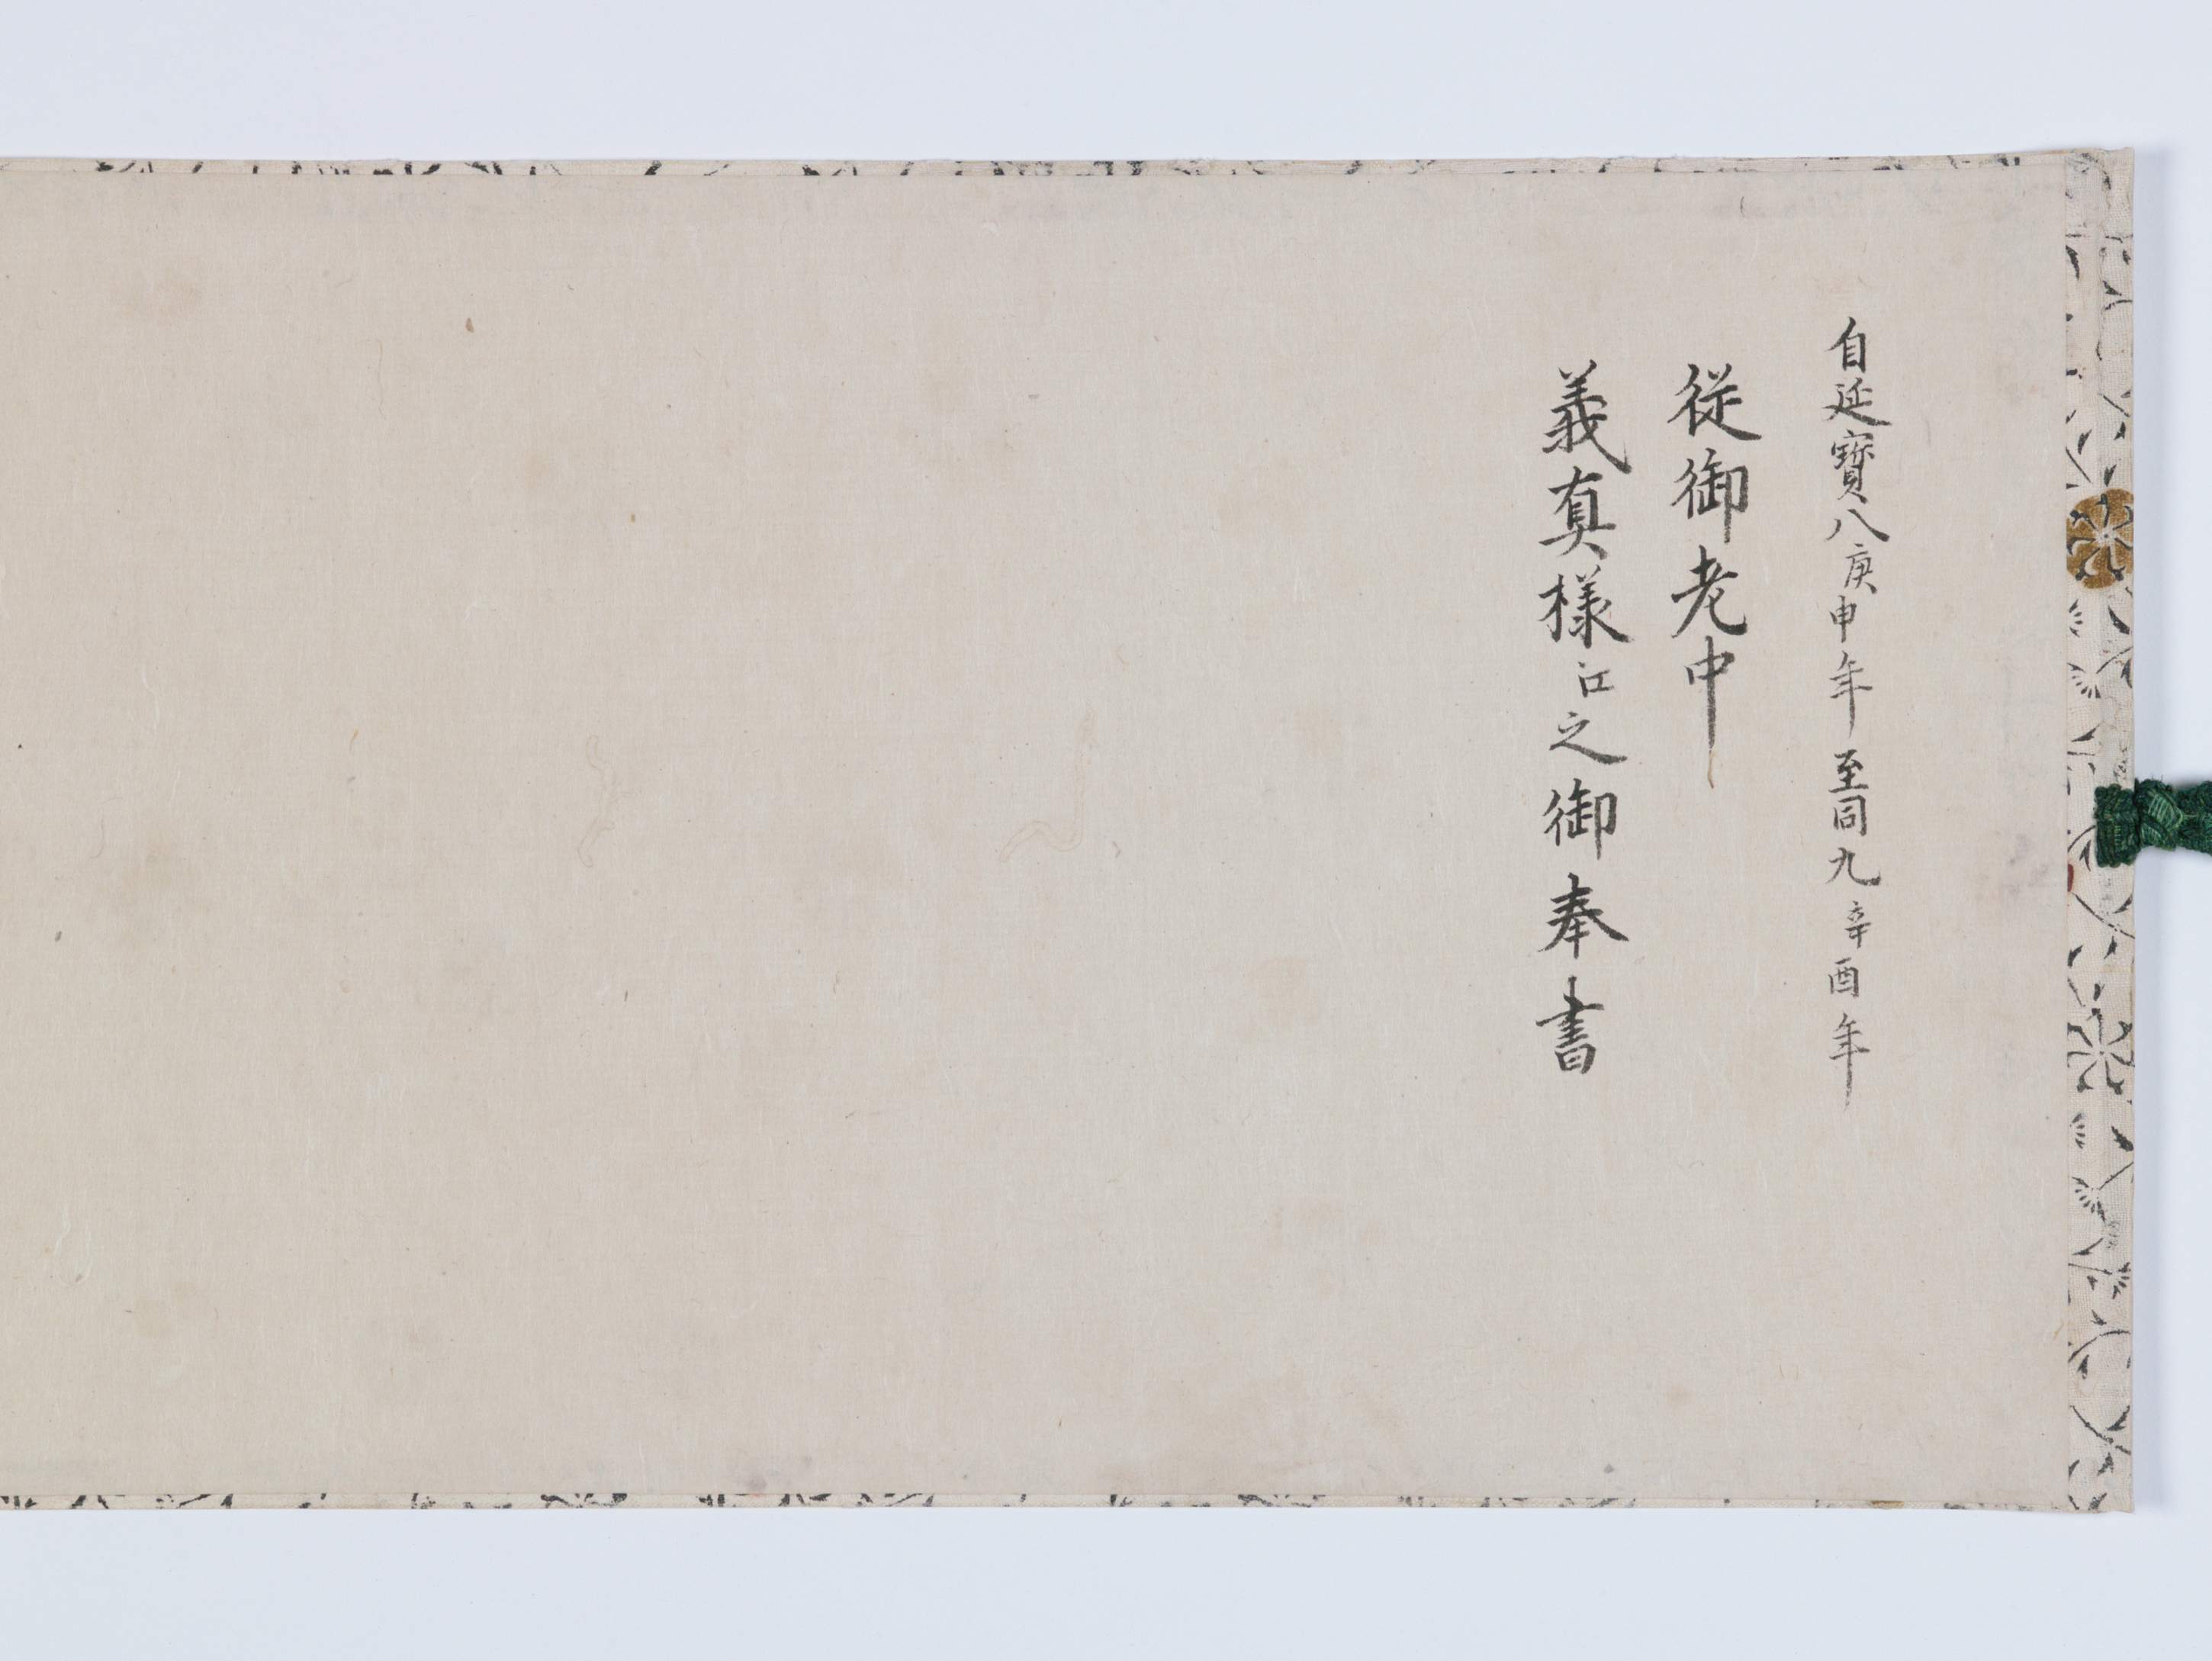 自延寳八庚申年至同九辛酉年
従御老中
義真様江之御奉書